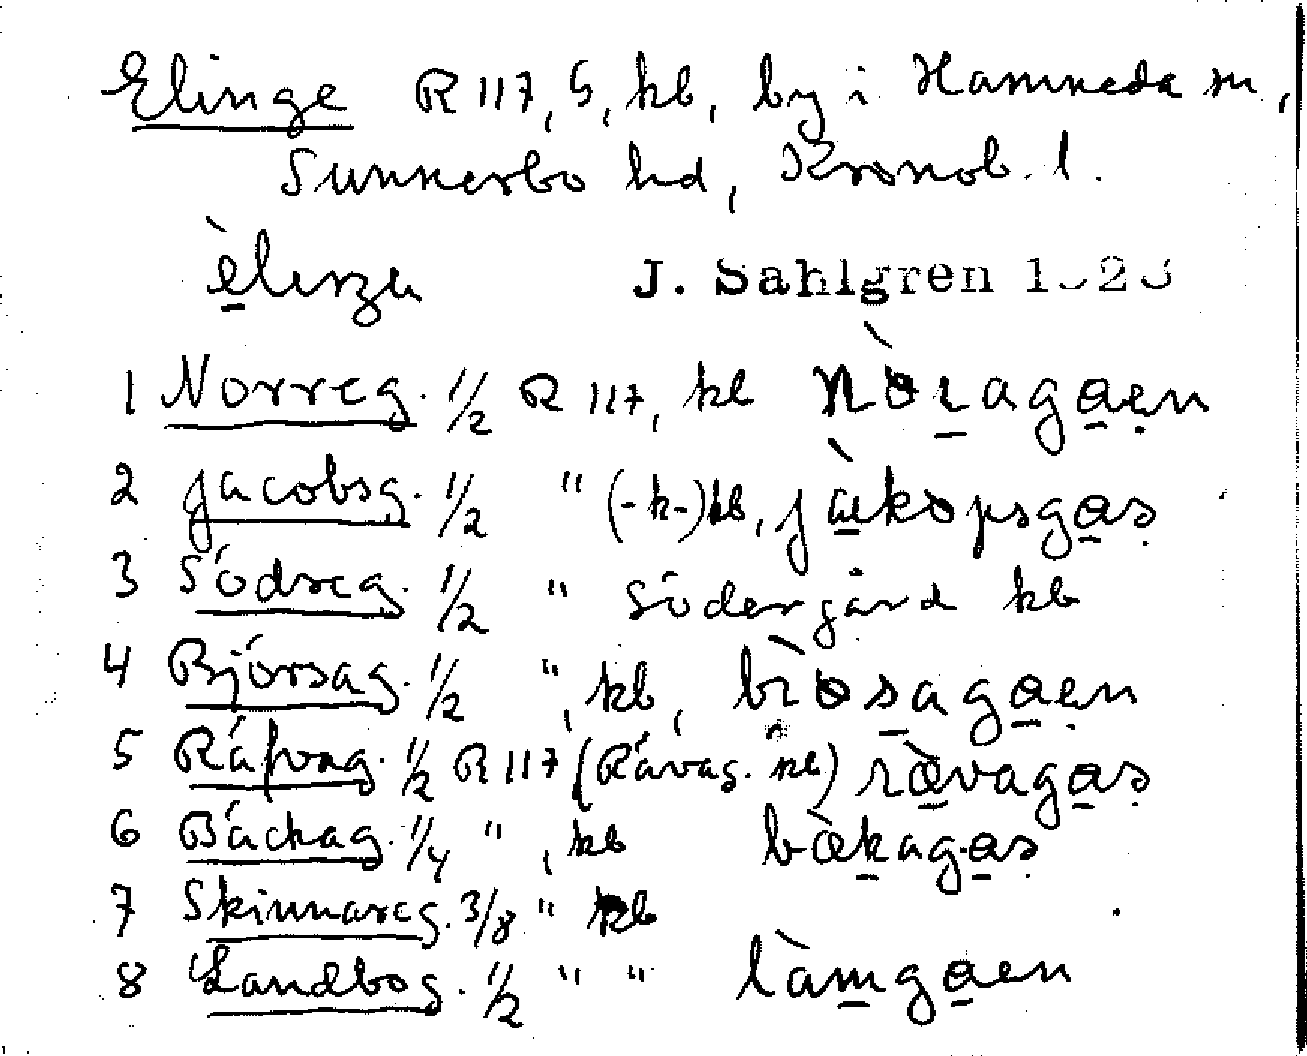 Elinge R 117, 5, kb, by i Hamneda sn,
Sunnerbo hd, Kronob. l.
J. Sahlgren
1 Norreg. 1/2 R 117, kb nòragaen
2 Jacobsg. 1/2 " (-k-) kb, jækopsgas
3 Södreg. 1/2 " Södergård kb
4 Björsag. 1/2 ", kb, biosagaen
5 Räfvag. 1/2 R 117 (Rävag. kb) rævagas
6 Bäckag. 1/4 ", kb bækagas
7 Skinnareg. 3/8 " kb
8 Landbog. 1/2 " " làmgaen